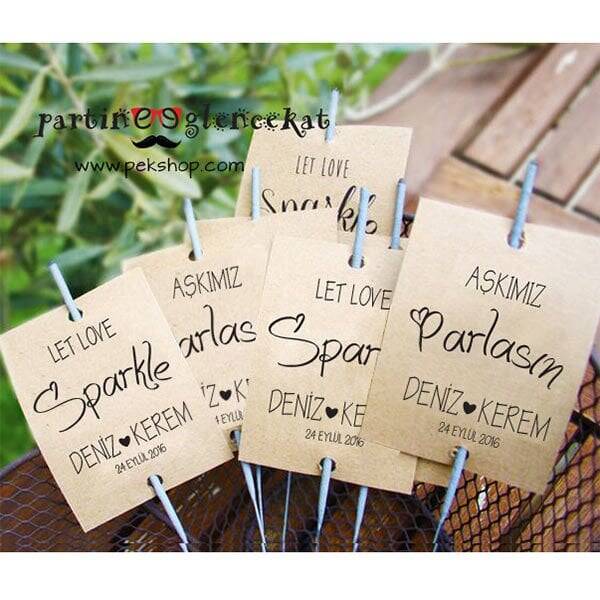 partineeglencekat
www.pekshop.com
LET LOVE
Sparkle
LET LOVE
Sparkle
DENİZ♥KEREM
24 EYLÜL 2016
AŞKIMIZ
arlas
DENİZ♥K
24 EYLÜL 201
LET LOVE
Spar
DENİZ♥KE
24 EYLÜL 2016
AŞKIMIZ
Parlasın
DENİZ♥KEREM
24 EYLÜL 2016